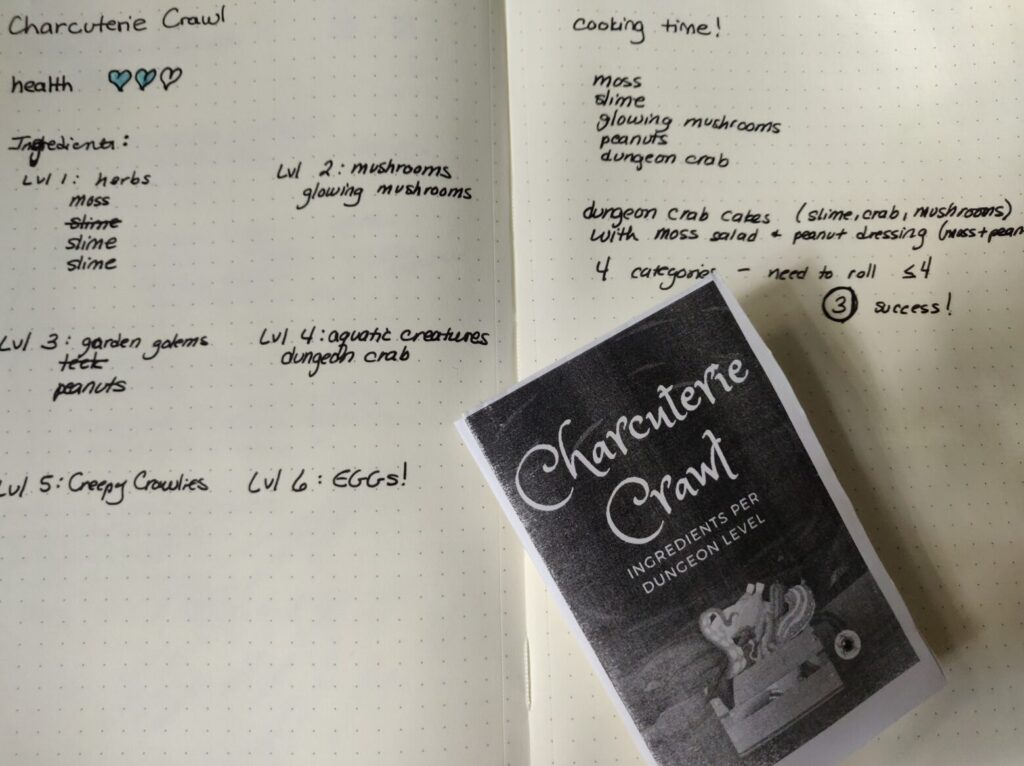 Charcuterie Crawl
health
Ingredients:
Lvl 1: herbs
moss
slime
slime
slime
Lvl 2: mushrooms
glowing mushrooms
Lvl 3: garden golems
teck
peanuts
Lvl 4: aquatic creatures
dungeon crab
Lvl 5: Creepy Crawlies
Lvl 6: EGGS!
cooking time!
moss
slime
glowing mushrooms
peanuts
dungeon crab
dungeon crab cakes (slime, crab, mushrooms)
with moss salad + peanut dressing (moss + pean
4 categories - need to roll ≤4
3 success!
Charcuterie
Crawl
INGREDIENTS PER
DUNGEON LEVEL